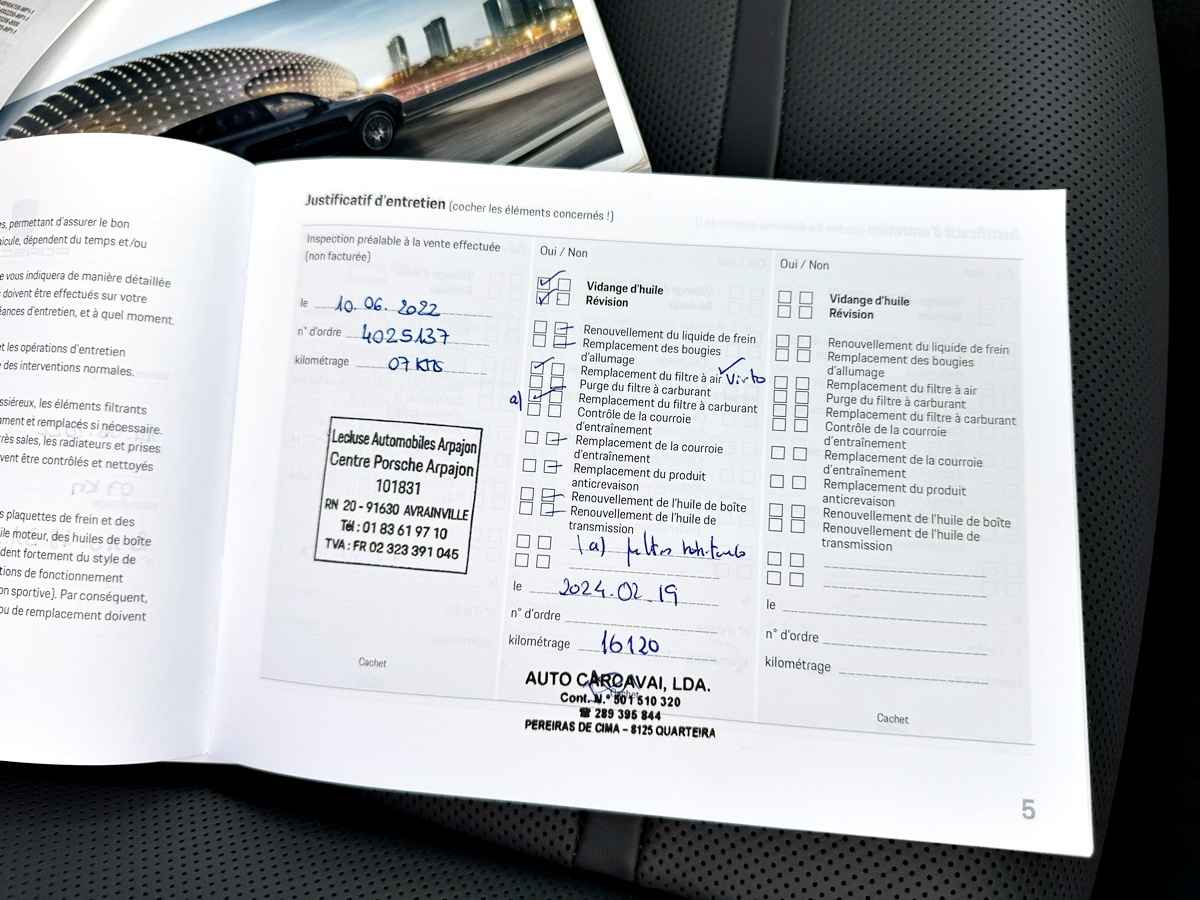 s, permettant d'assurer le bon
icule, dépendent du temps et/ou
e vous indiquera de manière détaillée
doivent être effectués sur votre
éances d'entretien, et à quel moment.
et les opérations d'entretien
des interventions normales.
ssiéreux, les éléments filtrants
ment et remplacés si nécessaire.
rès sales, les radiateurs et prises
vent être contrôlés et nettoyés
s plaquettes de frein et des
ile moteur, des huiles de boîte
dent fortement du style de
tions de fonctionnement
on sportive). Par conséquent,
ou de remplacement doivent
Justificatif d'entretien (cocher les éléments concernés !)
Inspection préalable à la vente effectuée
(non facturée)
le 10.06.2022
n° d'ordre 4025137
kilométrage 07 KMS
Lecluse Automobiles Arpajon
Centre Porsche Arpajon
101831
RN 20 - 91630 AVRAINVILLE
Tél : 01 83 61 97 10
TVA : FR 02 323 391 045
Cachet
Oui / Non
Vidange d'huile
Révision
Renouvellement du liquide de frein
Remplacement des bougies
d'allumage
Remplacement du filtre à air
Purge du filtre à carburant
a) Remplacement du filtre à carburant
Contrôle de la courroie
d'entraînement
Remplacement de la courroie
d'entraînement
Remplacement du produit
anticrevaison
Renouvellement de l'huile de boîte
Renouvellement de l'huile de
transmission
(a)
le 2024.02.19
n° d'ordre
kilométrage 16120
Cachet
AUTO CARCAVAI, LDA.
Cont. N.º 501 510 320
☎ 289 395 844
PEREIRAS DE CIMA – 8125 QUARTEIRA
Oui / Non
Vidange d'huile
Révision
Renouvellement du liquide de frein
Remplacement des bougies
d'allumage
Remplacement du filtre à air
Purge du filtre à carburant
Remplacement du filtre à carburant
Contrôle de la courroie
d'entraînement
Remplacement de la courroie
d'entraînement
Remplacement du produit
anticrevaison
Renouvellement de l'huile de boîte
Renouvellement de l'huile de
transmission
le
n° d'ordre
kilométrage
Cachet
5